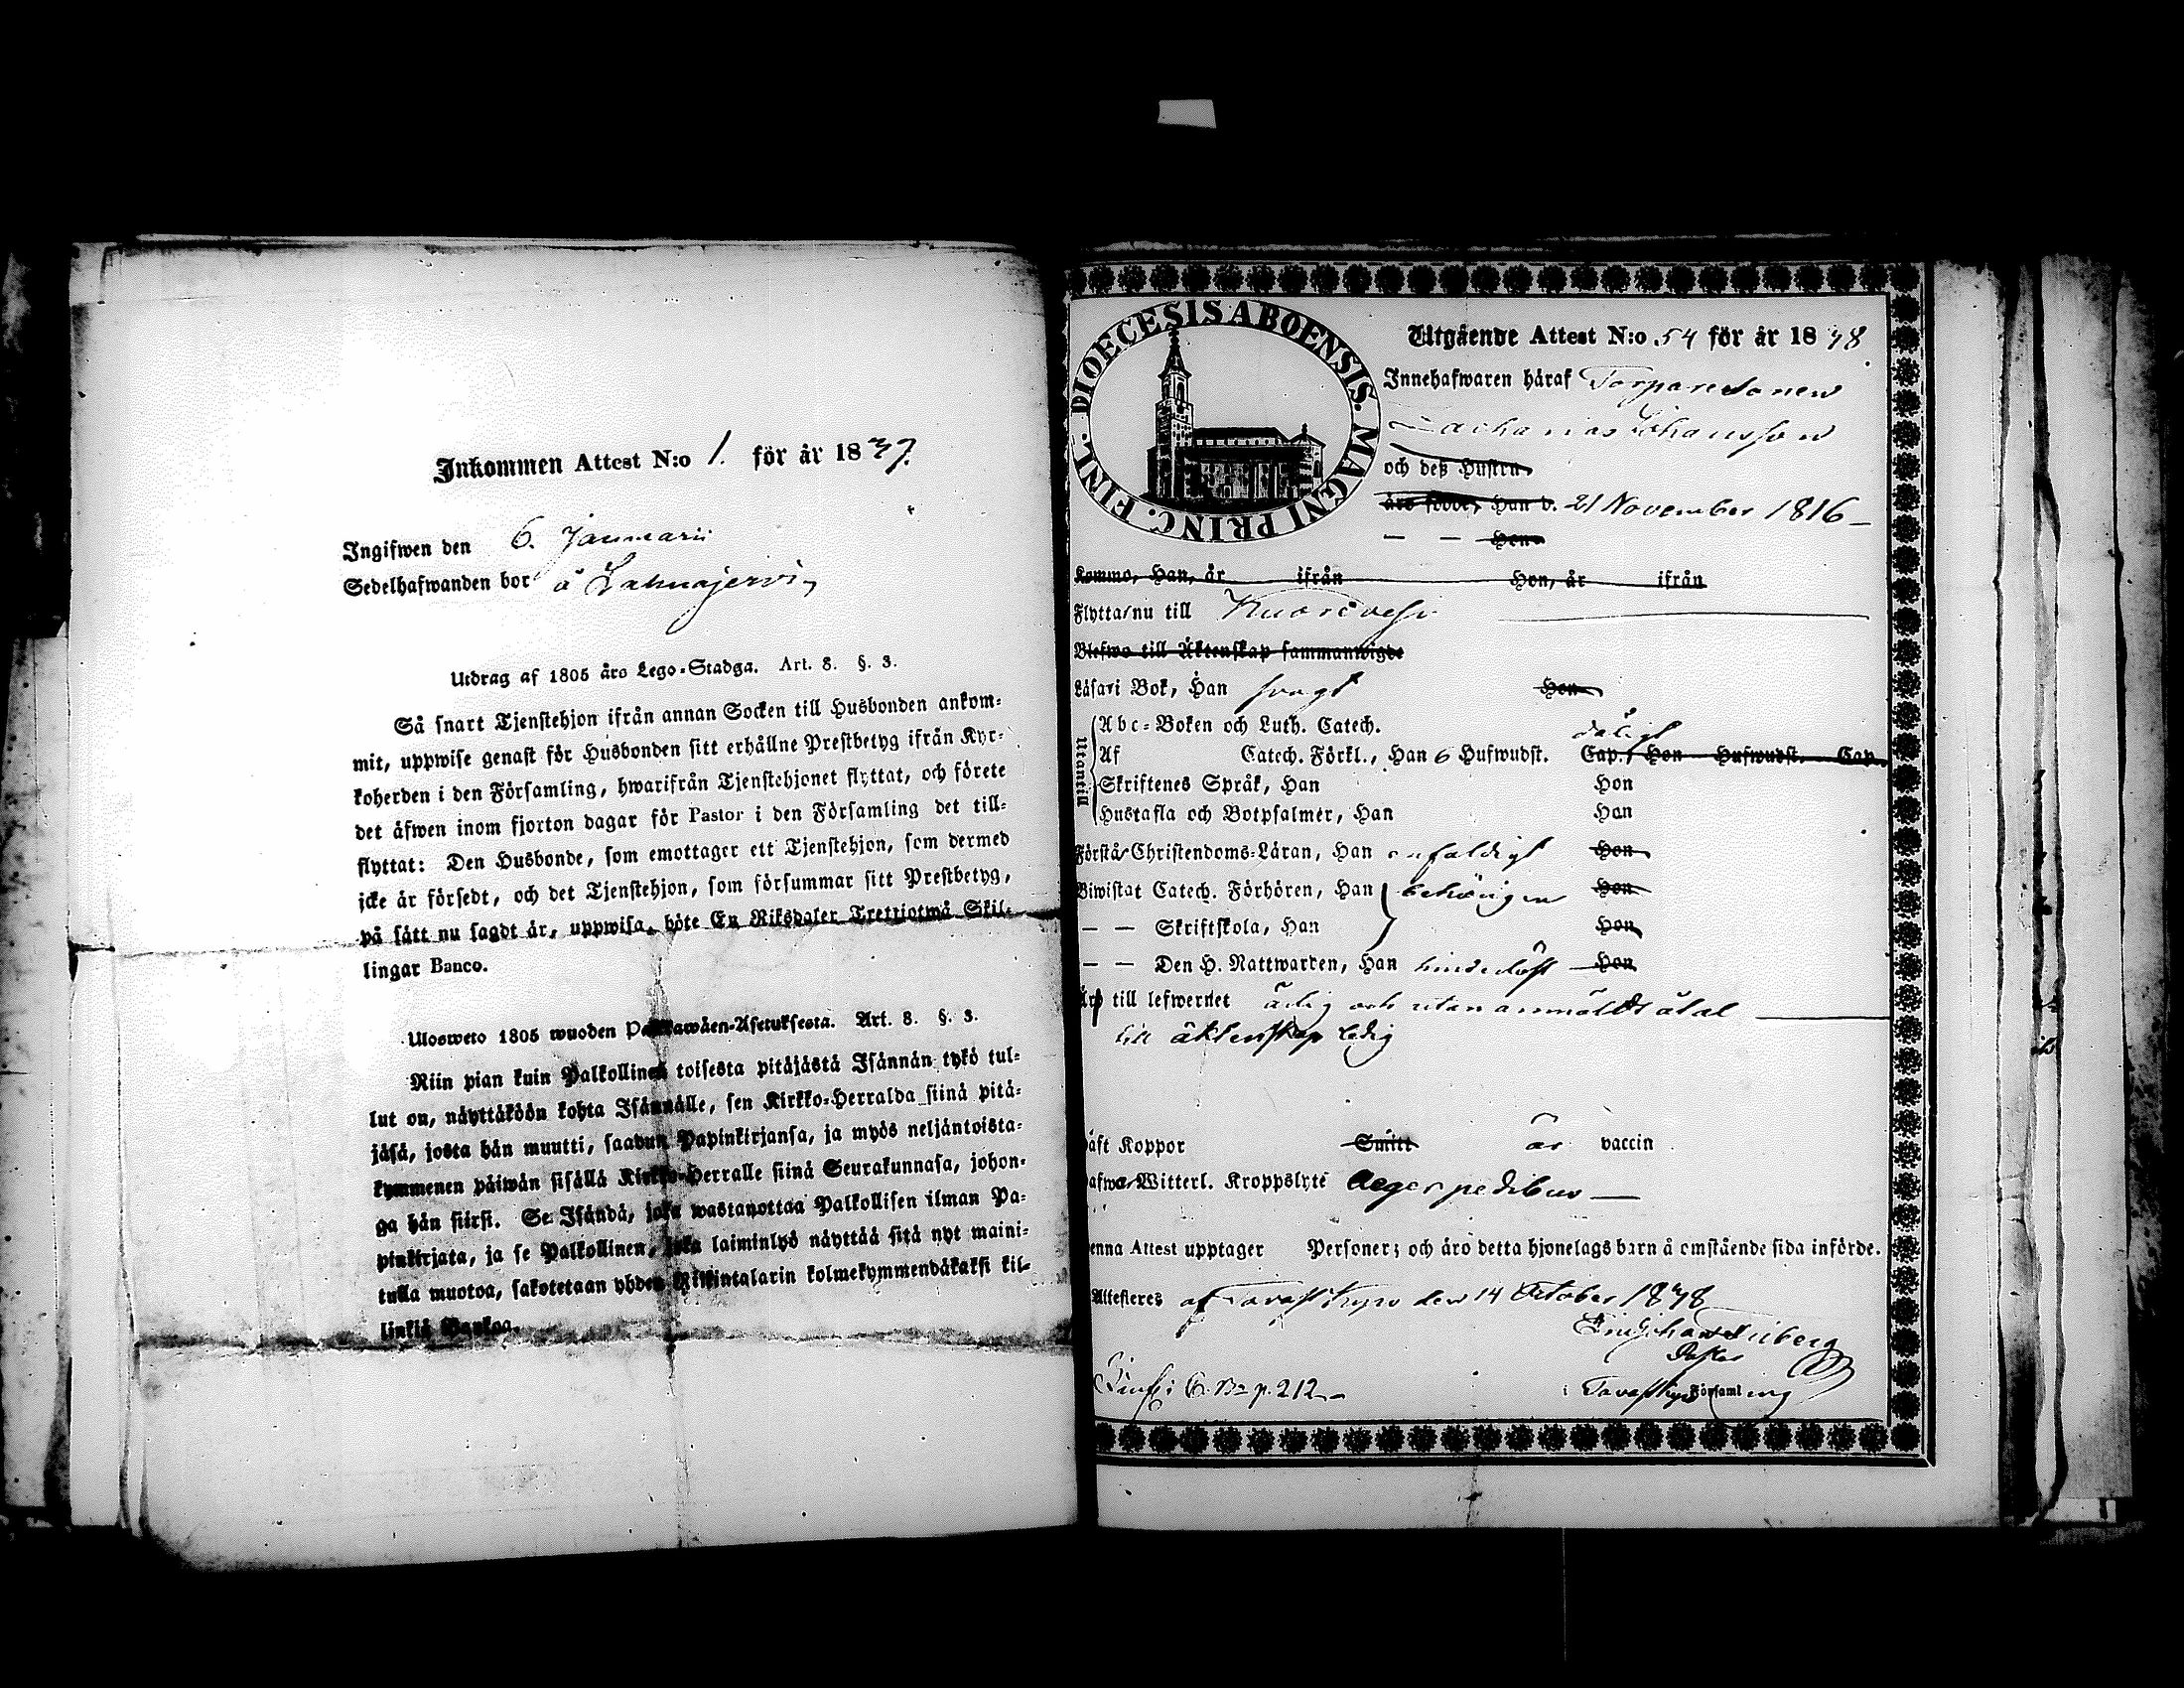 Inkommen Attest N:o 1. för år 1839.
Ingifwen den 6. Januarii
Sedelhafwanden bor å Lahnajerwi
Utdrag af 1805 års Lego-Stadga. Art. 8. §. 3.
Så snart Tjenstehjon ifrån annan Socken till Husbonden ankom-
mit, uppwise genast för Husbonden sitt erhållne Prestbetyg ifrån Kyr-
koherden i den Församling, hwarifrån Tjenstehjonet flyttat, och förete
det äfwen inom fjorton dagar för Pastor i den Församling det till-
flyttat: Den Husbonde, som emottager ett Tjenstehjon, som dermed
icke är försedt, och det Tjenstehjon, som försummar sitt Prestbetyg,
på sätt nu sagdt är, uppwisa, böte En Riksdaler Trettiotwå Skil-
lingar Banco.
Ulosweto 1805 wuoden Palkkawäen-Asetuksesta. Art. 8. §. 3.
Niin pian kuin Palkollinen toisesta pitäjästä Isännän tykö tul-
lut on, näyttäköön kohta Isännälle, sen Kirkko-Herralda siinä pitä-
jäsä, josta hän muutti, saadun Papinkirjansa, ja myös neljäntoista-
kymmenen päiwän sisällä Kirkko-Herralle siinä Seurakunnasa, johon-
ga hän siirsi. Se Isändä, joka wastanottaa Palkollisen ilman Pa-
pinkirjata, ja se Palkollinen, joka laiminlyö näyttää sitä nyt maini-
tulla muotoa, sakotetaan yhden Riikintalarin kolmekymmendäkaksi kil-
linkiä Bankoa.
DIOECESIS ABOENSIS. MAGNI PRINC. FINL.
Utgående Attest N:o 54 för år 1838
Innehafwaren häraf Torparesonen
Zacharias Johansson
och deß Hustru
äro födde, Han d. 21 November 1816
— — Hon
Kommo, Han, år ifrån Hon, år ifrån
Flytta nu till Kuorevesi
Blefwo till Äktenskap sammanwigde
Läsa i Bok, Han svagt Hon
Utantill
Abc-Boken och Luth. Catech. dåligt
Af Catech. Förkl., Han 6 Hufwudst. Cap., Hon Hufwudst. Cap.
Skriftenes Språk, Han Hon
Hustafla och Botpsalmer, Han Hon
Förstå Christendoms-Läran, Han enfaldigt Hon
Biwistat Catech. Förhören, Han behörigen Hon
— — Skriftskola, Han Hon
— — Den H. Nattwarden, Han Hon
Äro till lefwernet ärlig och utan anmäldt åtal
till äktenskap ledig
äft Koppor Smitt är vaccin
afwa Witterl. Kroppslyte Aeger pedibus
enna Attest upptager Personer; och äro detta hjonelags barn å omstående sida införde.
Attesteres af Tavastkyro den 14 October 1838
Pastor
i Tavastkyro Församling
p. 212